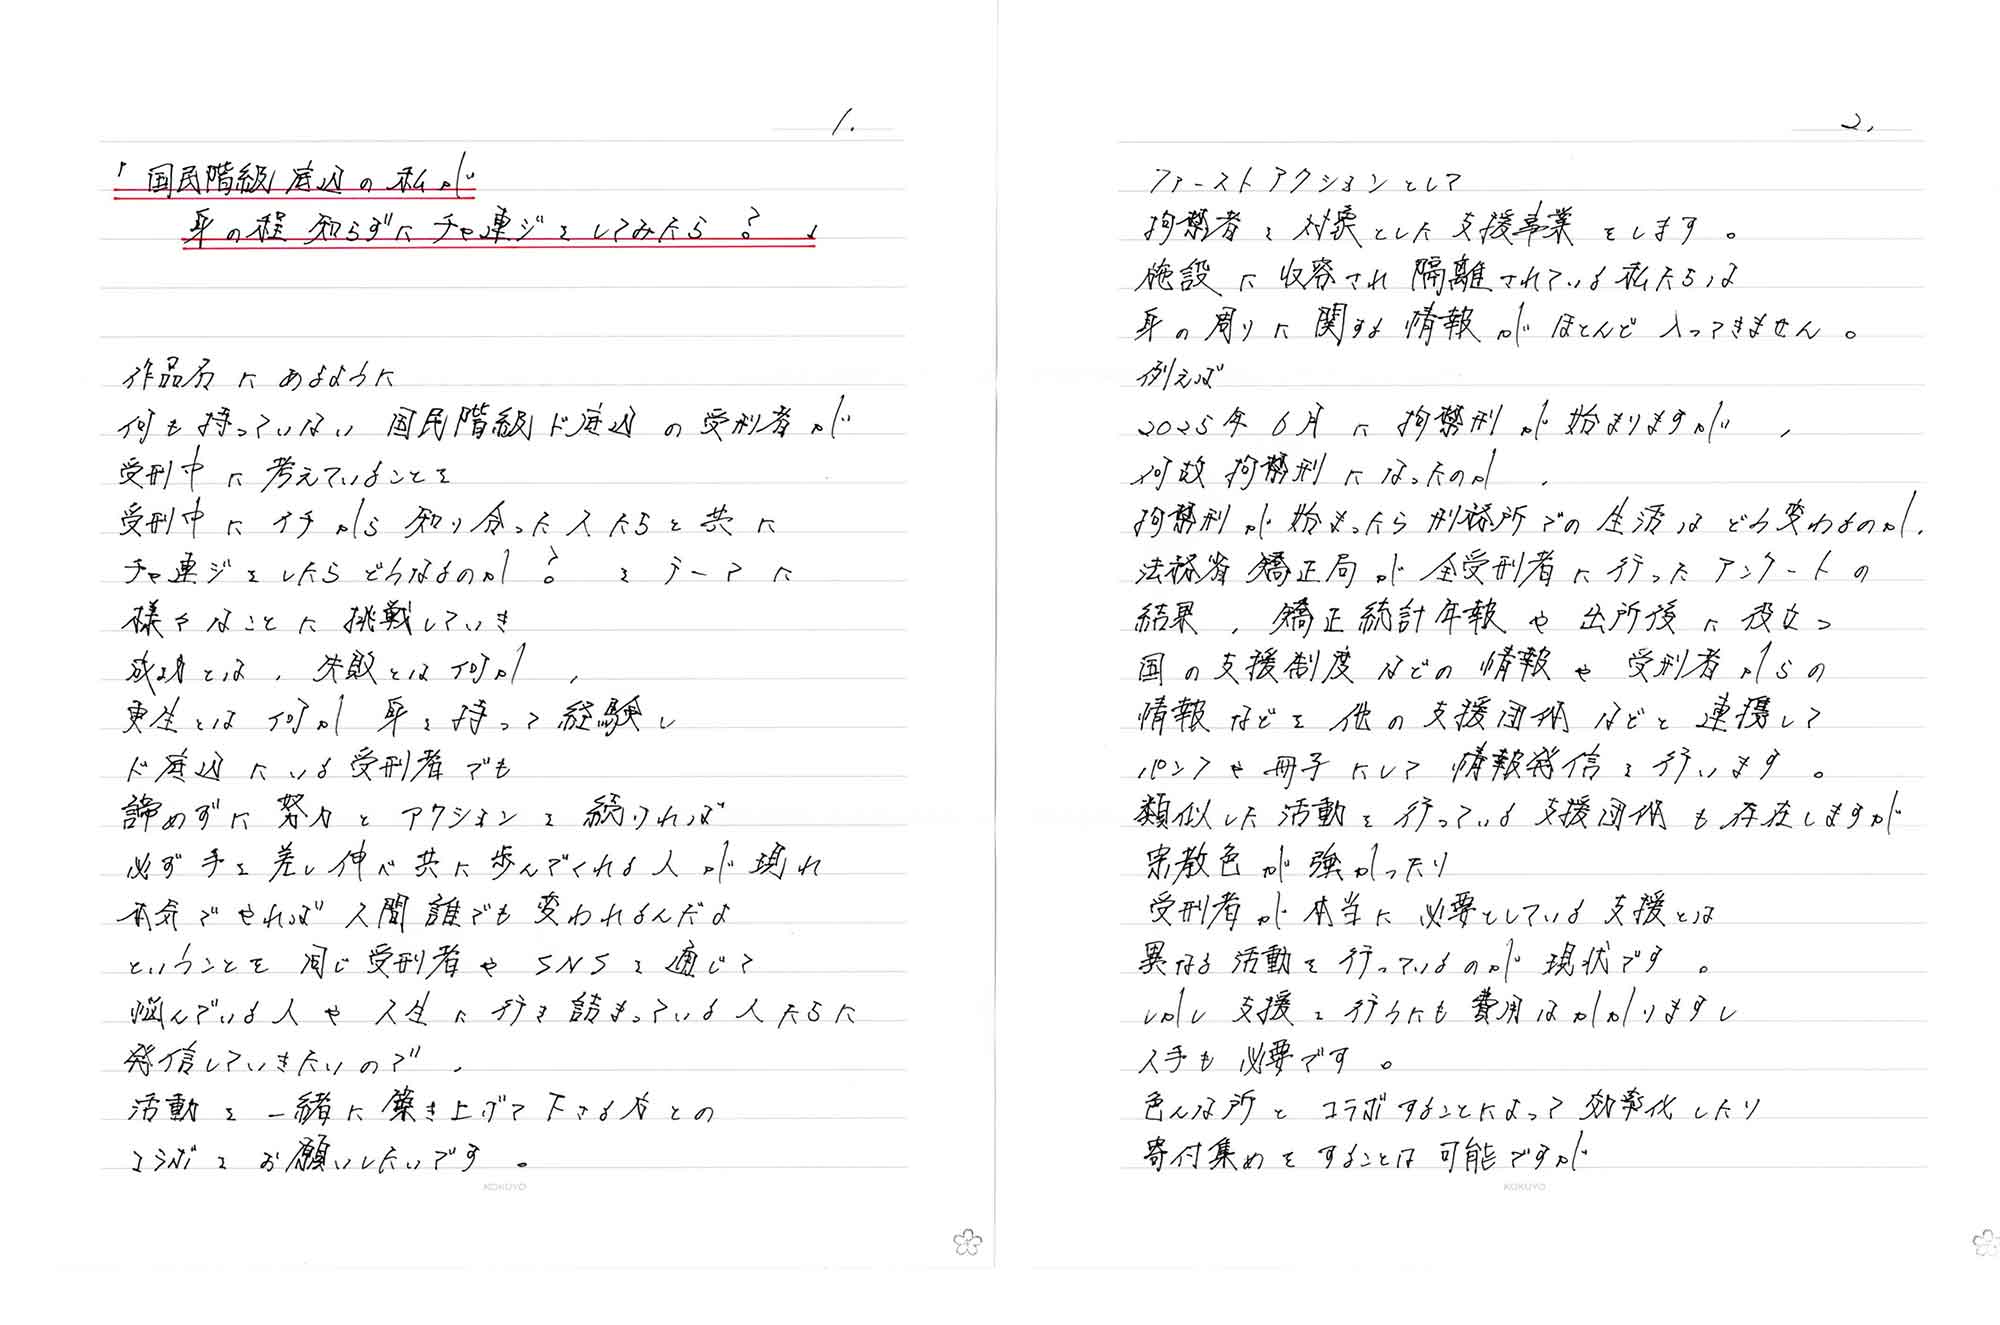 1.
「国民階級底辺の私が
身の程知らずにチャ連ジをしてみたら？」
作品名にあるように
何も持っていない国民階級ド底辺の受刑者が
受刑中に考えていることを
受刑中にイチから知り合った人たちと共に
チャ連ジをしたらどうなるのか？をテーマに
様々なことに挑戦していき
成功とは、失敗とは何か、
更生とは何か身を持って経験し
ド底辺にいる受刑者でも
諦めずに努力とアクションを続ければ
必ず手を差し伸べ共に歩んでくれる人が現れ
本気でやれば人間誰でも変われるんだよ
ということを同じ受刑者やSNSを通じて
悩んでいる人や人生に行き詰まっている人たちに
発信していきたいので、
活動を一緒に築き上げて下さる方との
コラボをお願いしたいです。
KOKUYO
2,
ファーストアクションとして
拘禁者を対象とした支援事業をします。
施設に収容され隔離されている私たちは
身の周りに関する情報がほとんど入ってきません。
例えば
2025年6月に拘禁刑が始まりますが、
何故拘禁刑になったのか、
拘禁刑が始まったら刑務所での生活はどう変わるのか、
法務省矯正局が全受刑者に行ったアンケートの
結果、矯正統計年報や出所後に役立つ
国の支援制度などの情報や受刑者からの
情報などを他の支援団体などと連携して
パンフや冊子にして情報発信を行います。
類似した活動を行っている支援団体も存在しますが
宗教色が強かったり
受刑者が本当に必要としている支援とは
異なる活動を行っているのが現状です。
しかし支援を行うにも費用はかかりますし
人手も必要です。
色んな所とコラボすることによって効率化したり
寄付集めをすることは可能ですが
KOKUYO